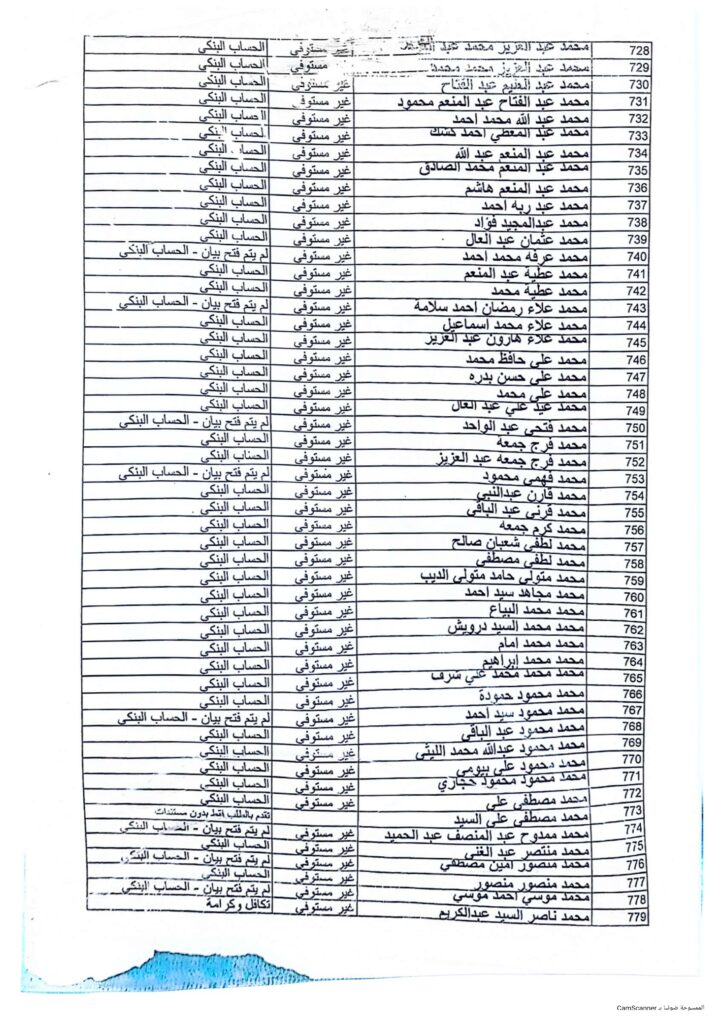 728 محمد عبد العزيز محمد عبد غير مستوفي الحساب البنكى
729 محمد عبد العزيز محمد محمد مستوفي الحساب البنكى
730 محمد عبد العليم عبد الفتاح غير مستوفي الحساب البنكى
731 محمد عبد الفتاح عبد المنعم محمود غير مستوفي الحساب البنكى
732 محمد عبد الله محمد احمد غير مستوفي الحساب البنكى
733 محمد عبد المعطي احمد كشك غير مستوفي الحساب البنكى
734 محمد عبد المنعم عبد الله غير مستوفي الحساب البنكى
735 محمد عبد المنعم محمد الصادق غير مستوفي الحساب البنكى
736 محمد عبد المنعم هاشم غير مستوفي الحساب البنكى
737 محمد عبد ربه احمد غير مستوفي الحساب البنكى
738 محمد عبدالمجيد فؤاد غير مستوفي الحساب البنكى
739 محمد عثمان عبد العال غير مستوفي الحساب البنكى
740 محمد عرفه محمد احمد غير مستوفي لم يتم فتح بيان - الحساب البنكى
741 محمد عطية عبد المنعم غير مستوفي الحساب البنكى
742 محمد عطية محمد غير مستوفي الحساب البنكى
743 محمد علاء رمضان احمد سلامة غير مستوفي لم يتم فتح بيان - الحساب البنكى
744 محمد علاء محمد اسماعيل غير مستوفي الحساب البنكى
745 محمد علاء هارون عبد العزيز غير مستوفي الحساب البنكى
746 محمد على حافظ محمد غير مستوفي الحساب البنكى
747 محمد على حسن بدره غير مستوفي الحساب البنكى
748 محمد على محمد غير مستوفي الحساب البنكى
749 محمد عيد علي عبد العال غير مستوفي الحساب البنكى
750 محمد فتحى عبد الواحد غير مستوفي لم يتم فتح بيان - الحساب البنكى
751 محمد فرج جمعه غير مستوفي الحساب البنكى
752 محمد فرج جمعه عبد العزيز غير مستوفي الحساب البنكى
753 محمد فهمى محمود غير مستوفي لم يتم فتح بيان - الحساب البنكى
754 محمد قارن عبدالنبى غير مستوفي الحساب البنكى
755 محمد قرنى عبد الباقى غير مستوفي الحساب البنكى
756 محمد كرم جمعه غير مستوفي الحساب البنكى
757 محمد لطفى شعبان صالح غير مستوفي الحساب البنكى
758 محمد لطفى مصطفى غير مستوفي الحساب البنكى
759 محمد متولى حامد متولى الديب غير مستوفي الحساب البنكى
760 محمد مجاهد سيد احمد غير مستوفي الحساب البنكى
761 محمد محمد البياع غير مستوفي الحساب البنكى
762 محمد محمد السيد درويش غير مستوفي الحساب البنكى
763 محمد محمد امام غير مستوفي الحساب البنكى
764 محمد محمد إبراهيم غير مستوفي الحساب البنكى
765 محمد محمد محمد علي شرف غير مستوفي الحساب البنكى
766 محمد محمود حمودة غير مستوفي الحساب البنكى
767 محمد محمود سيد احمد غير مستوفي لم يتم فتح بيان - الحساب البنكى
768 محمد محمود عبد الباقى غير مستوفي الحساب البنكى
769 محمد محمود عبدالله محمد الليثى غير مستوفي الحساب البنكى
770 محمد محمود على بيومى غير مستوفي الحساب البنكى
771 محمد محمود محمود حجازي غير مستوفي الحساب البنكى
772 محمد مصطفى على غير مستوفي الحساب البنكى
773 محمد مصطفى على السيد تقدم بالطلب فقط بدون مستندات
774 محمد ممدوح عبد المنصف عبد الحميد غير مستوفي لم يتم فتح بيان - الحساب البنكى
775 محمد منتصر عبد الغنى غير مستوفي الحساب البنكى
776 محمد منصور امين مصطفي غير مستوفي لم يتم فتح بيان - الحساب البنكى
777 محمد منصور منصور غير مستوفي الحساب البنكى
778 محمد موسي احمد موسي غير مستوفي لم يتم فتح بيان - الحساب البنكى
779 محمد ناصر السيد عبدالكريم غير مستوفي تكافل وكرامة
الممسوحة ضوئيا بـ CamScanner